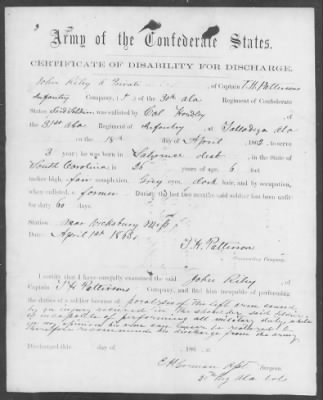 Army of the Confederate States.
CERTIFICATE OF DISABILITY FOR DISCHARGE.
John Riley a Private of Captain T.H. Patterson's
Infantry Company, of the 30th Ala Regiment of Confederate
States was enlisted by Col
the 31st Ala Regiment of Infantry at Talladega Ala
on the 18th day of April 1862 to serve
3 years; he was born in dist in the State of
South Carolina is 25 years of age, 6 feet
inches high, fair complexion, Grey eyes, dark hair, and by occupation,
when enlisted, a farmer. During the last two months said soldier has been unfit
for duty 60 days.
Station: near Vicksburg Miss
Date: April 1st 1863
T.H. Patterson
Commanding Company.
I certify that I have carefully examined the said John Riley
of Captain T H Pattersons Company, and find him incapable of performing
the duties of a soldier because of paralysis of the left arm caused
by an injury received in the shoulder said soldier
is incapable of performing all military duty while
in my opinion his arm can never be restored I
therefore recommend his discharge from the army
Discharged this day of 186
Surgeon.
30th Ala